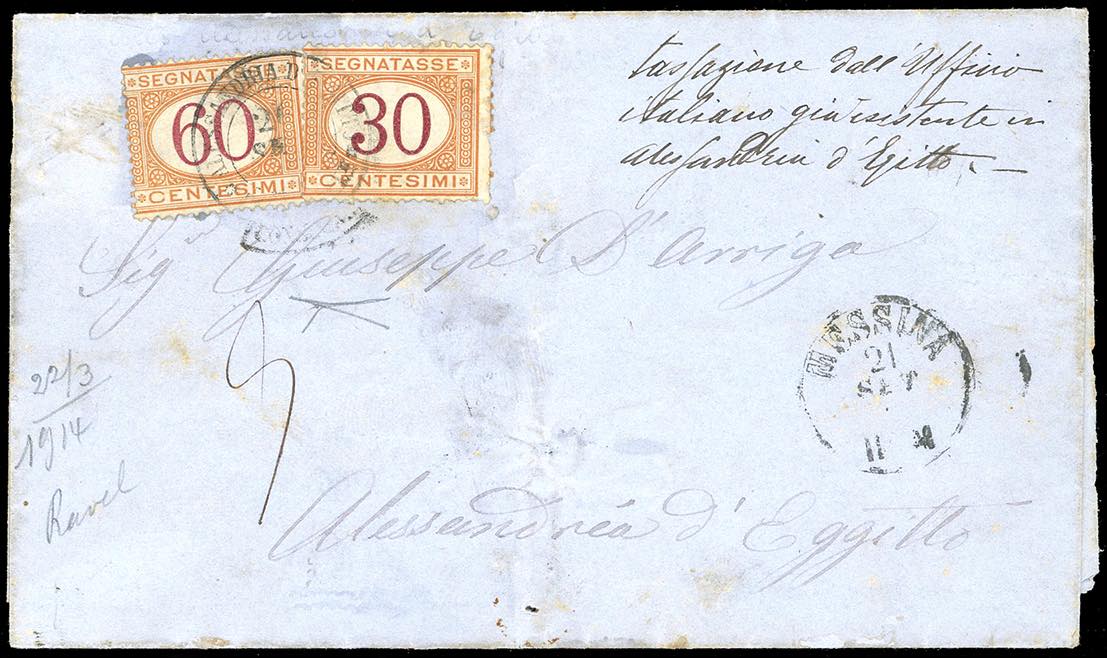 SEGNATASSE
60
CENTESIMI
SEGNATASSE
30
CENTESIMI
tassazione dall'Ufficio
italiano già esistente in
alessandria d'Egitto. —
Sig Giuseppe D'Arrigo
MESSINA
21
SET
11 M
22/3
1914
Ravel
Alessandréa d'Eggitto